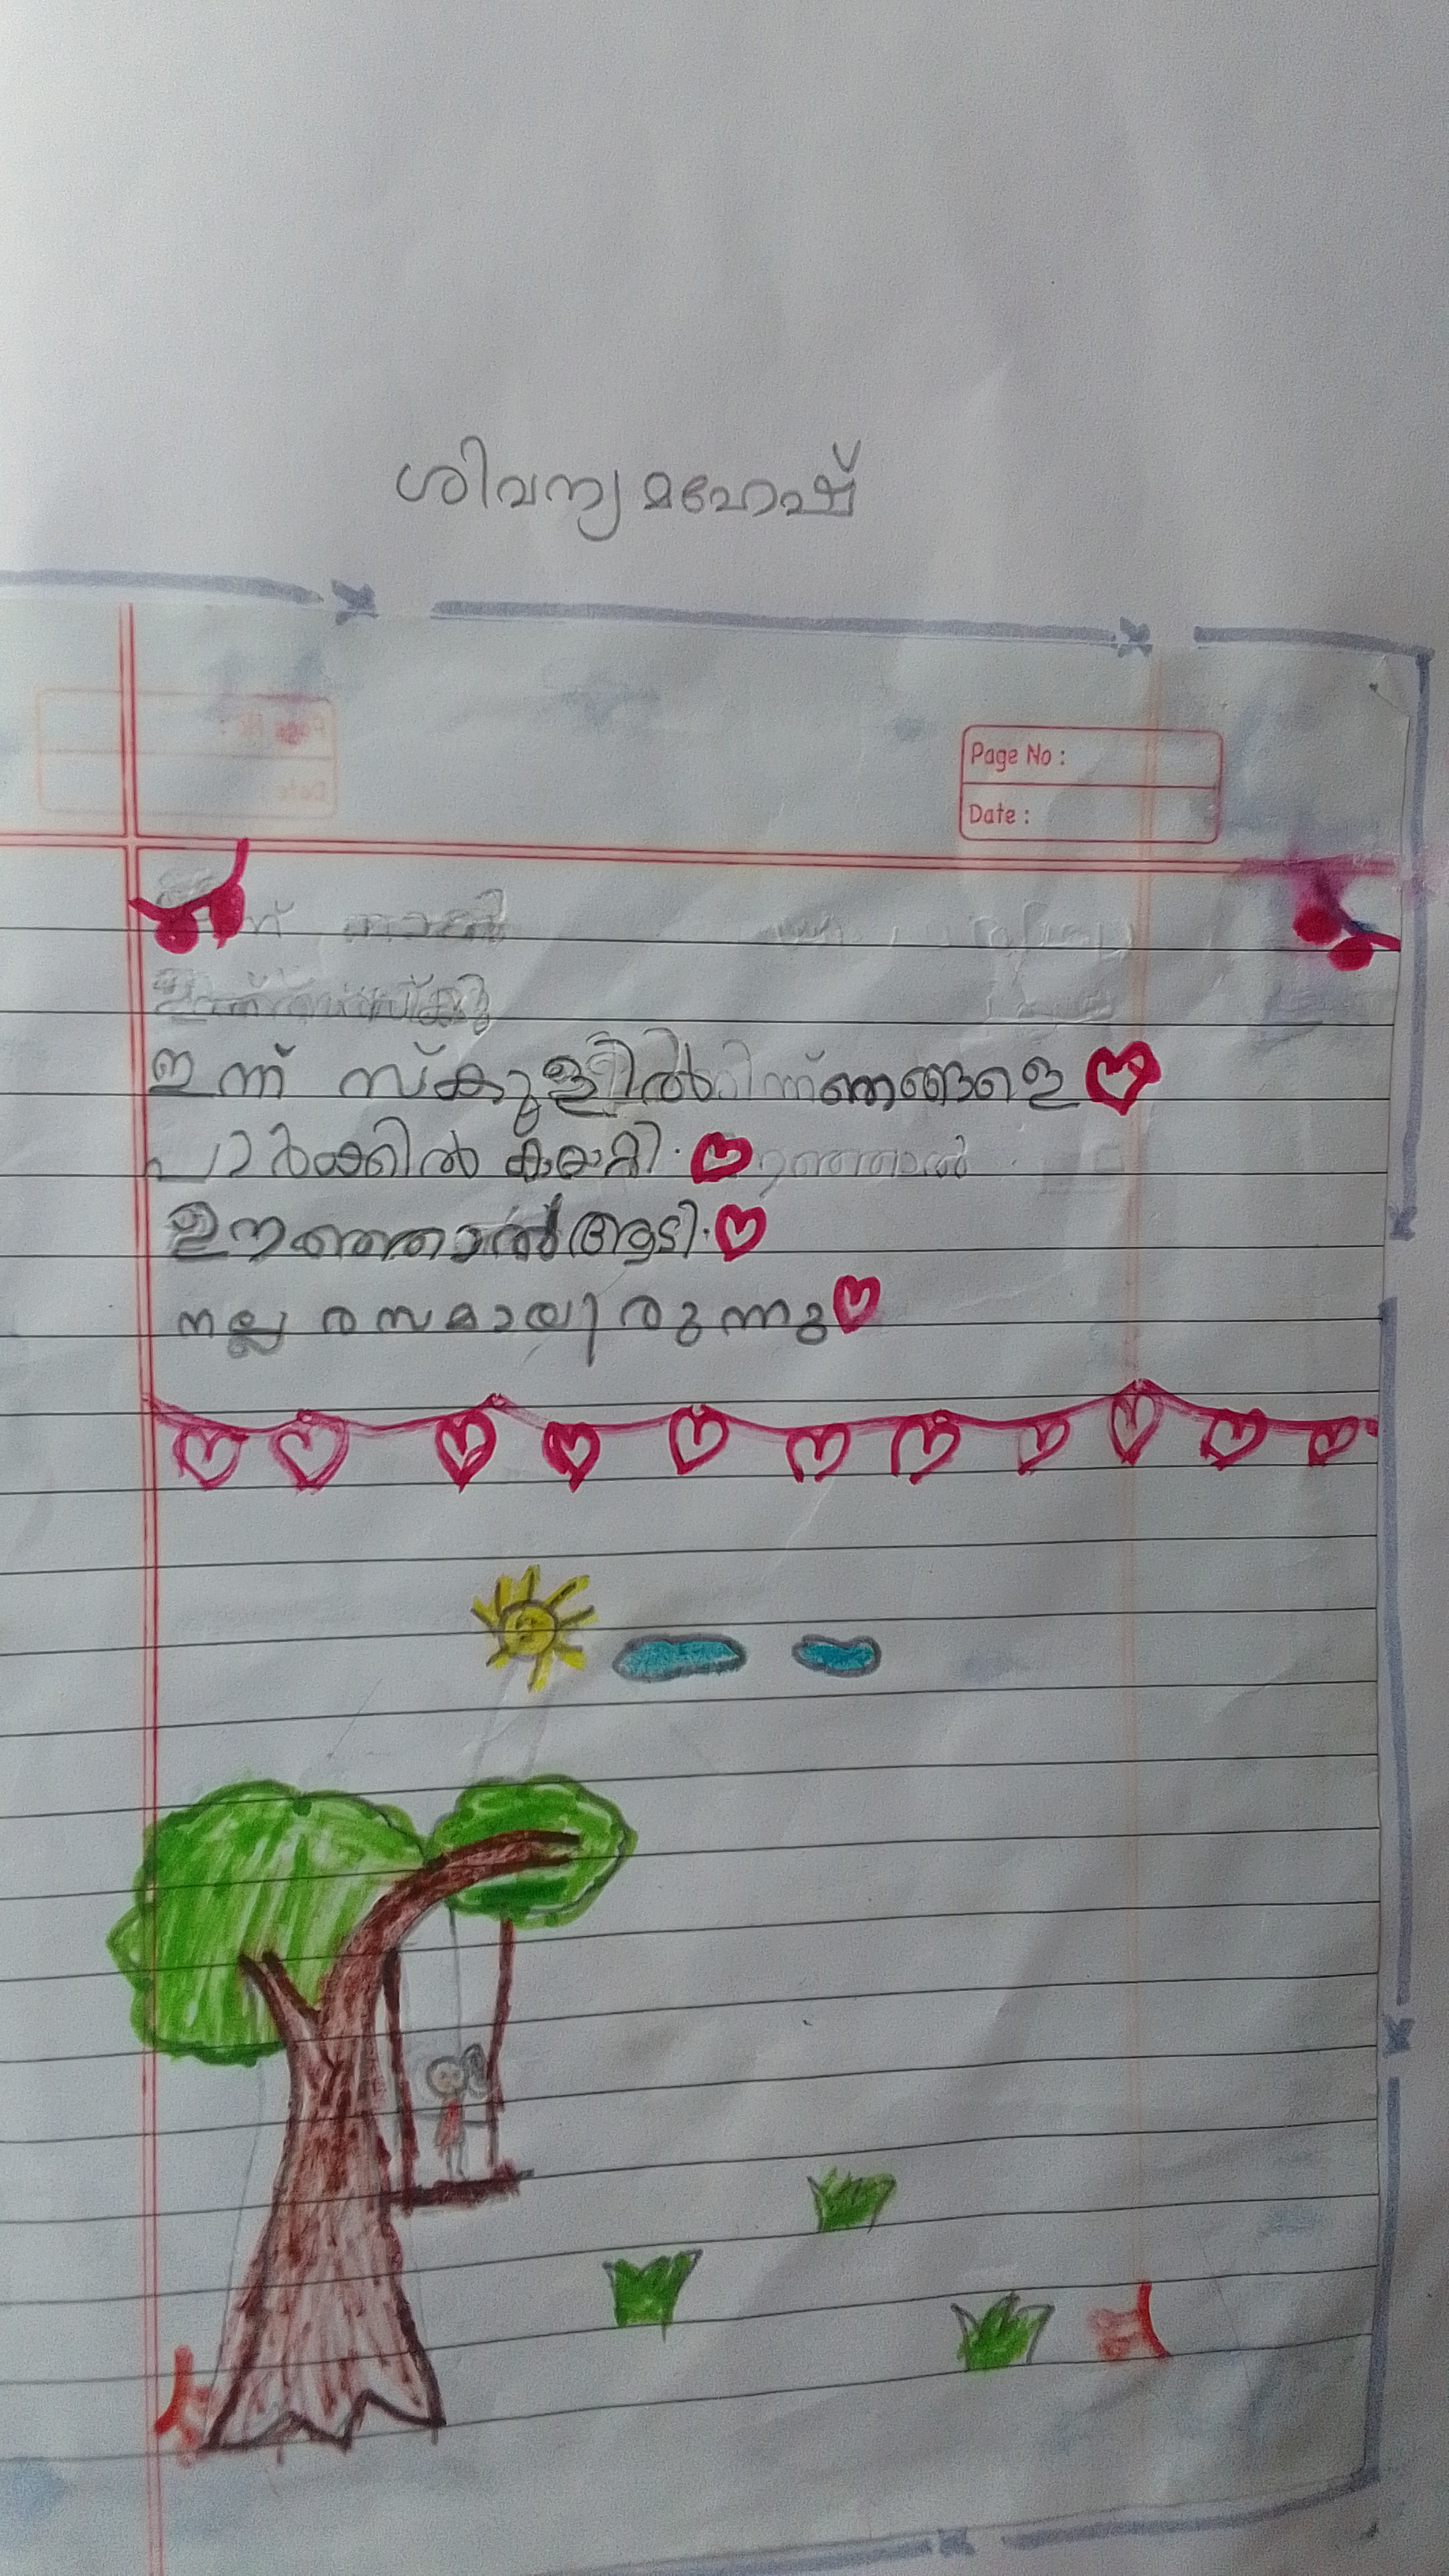 ശിവന്യ മഹേഷ്
Page No :
Date :
ഇന്ന് സ്കുളിൽ ഞങ്ങളെ
പാർക്കിൽ കയറ്റി.
ഊഞ്ഞാൽ ആടി.
നല്ല രസമായി രുന്നു